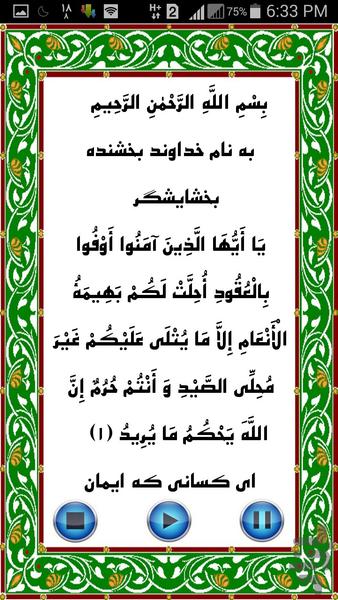 ١٨ H+ 2 75% 6:33 PM
بِسْمِ اللَّهِ الرَّحْمٰنِ الرَّحِيمِ
به نام خداوند بخشنده
بخشایشگر
يَا أَيُّهَا الَّذِينَ آمَنُوا أَوْفُوا
بِالْعُقُودِ أُحِلَّتْ لَكُمْ بَهِيمَةُ
الْأَنْعَامِ إِلاَّ مَا يُتْلَى عَلَيْكُمْ غَيْرَ
مُحِلِّى الصَّيْدِ وَ أَنْتُمْ حُرُمٌ إِنَّ
اللَّهَ يَحْكُمُ مَا يُرِيدُ (١)
ای کسانی که ایمان